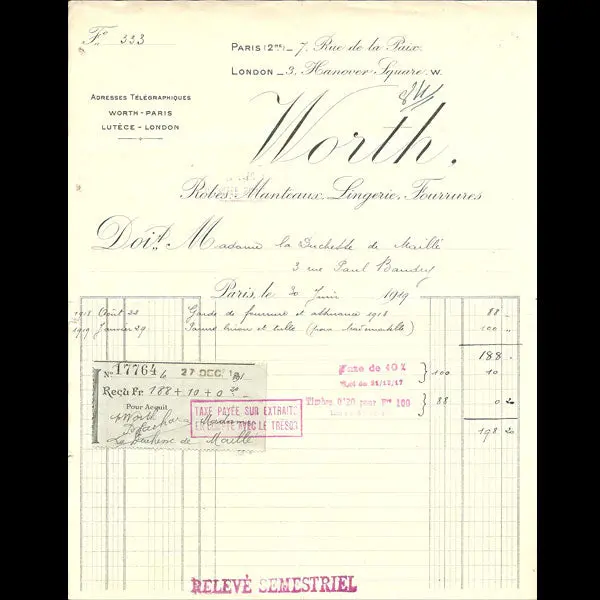 Fo 333
PARIS (2ME) _ 7, Rue de la Paix.
LONDON _ 3, Hanover Square, W.
ADRESSES TÉLÉGRAPHIQUES
WORTH - PARIS
LUTÈCE - LONDON
Worth.
Robes, Manteaux, Lingerie, Fourrures
Doit Madame la Duchesse de Maillé
3 rue Paul Baudry
Paris, le 20 Juin 1919
1918 Août 22 Garde de fourrure et assurance 1918 88 "
1919 Janvier 29 et tulle (pour 100 "
188 -
Taxe de 10% } 100 10
Loi du 31/12/17
Timbre 0'20 pour Frs 100 } 88 0 20
198 20
No 17764 le 27 DEC. 191
Reçu Fr. 188 + 10 + 0 20 -
Pour Acquit,
Worth
Madame
La Duchesse de Maillé
TAXE PAYÉE SUR EXTRAITS
EN COMPTE AVEC LE TRÉSOR
RELEVÉ SEMESTRIEL